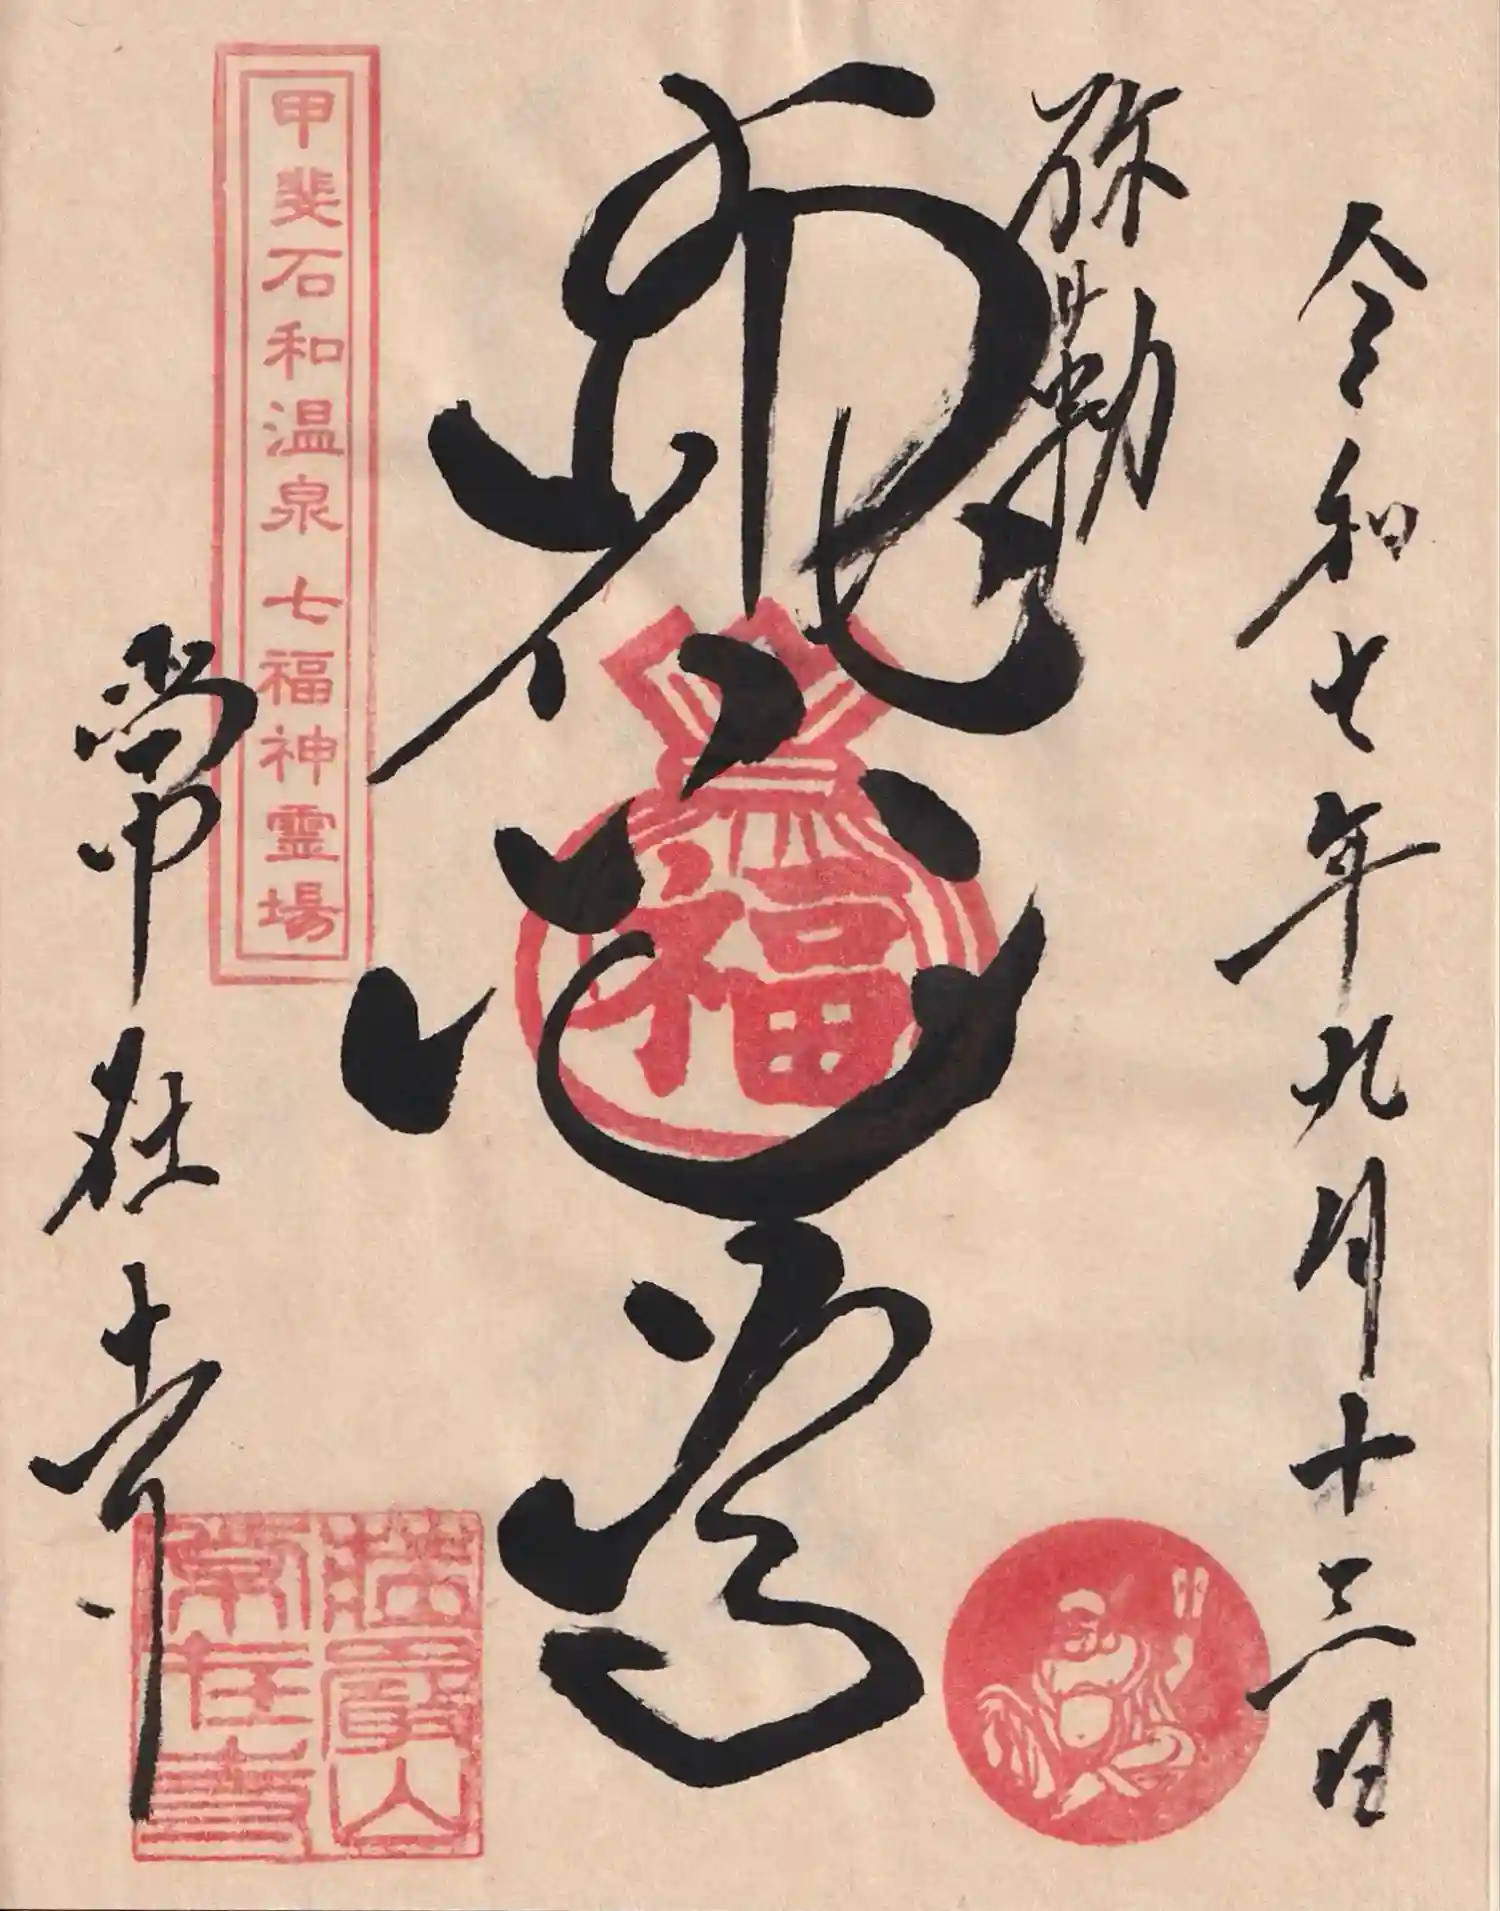 令和七年九月十三日
弥勒
布袋尊
福
甲斐石和温泉 七福神霊場
常在寺
山
常在寺